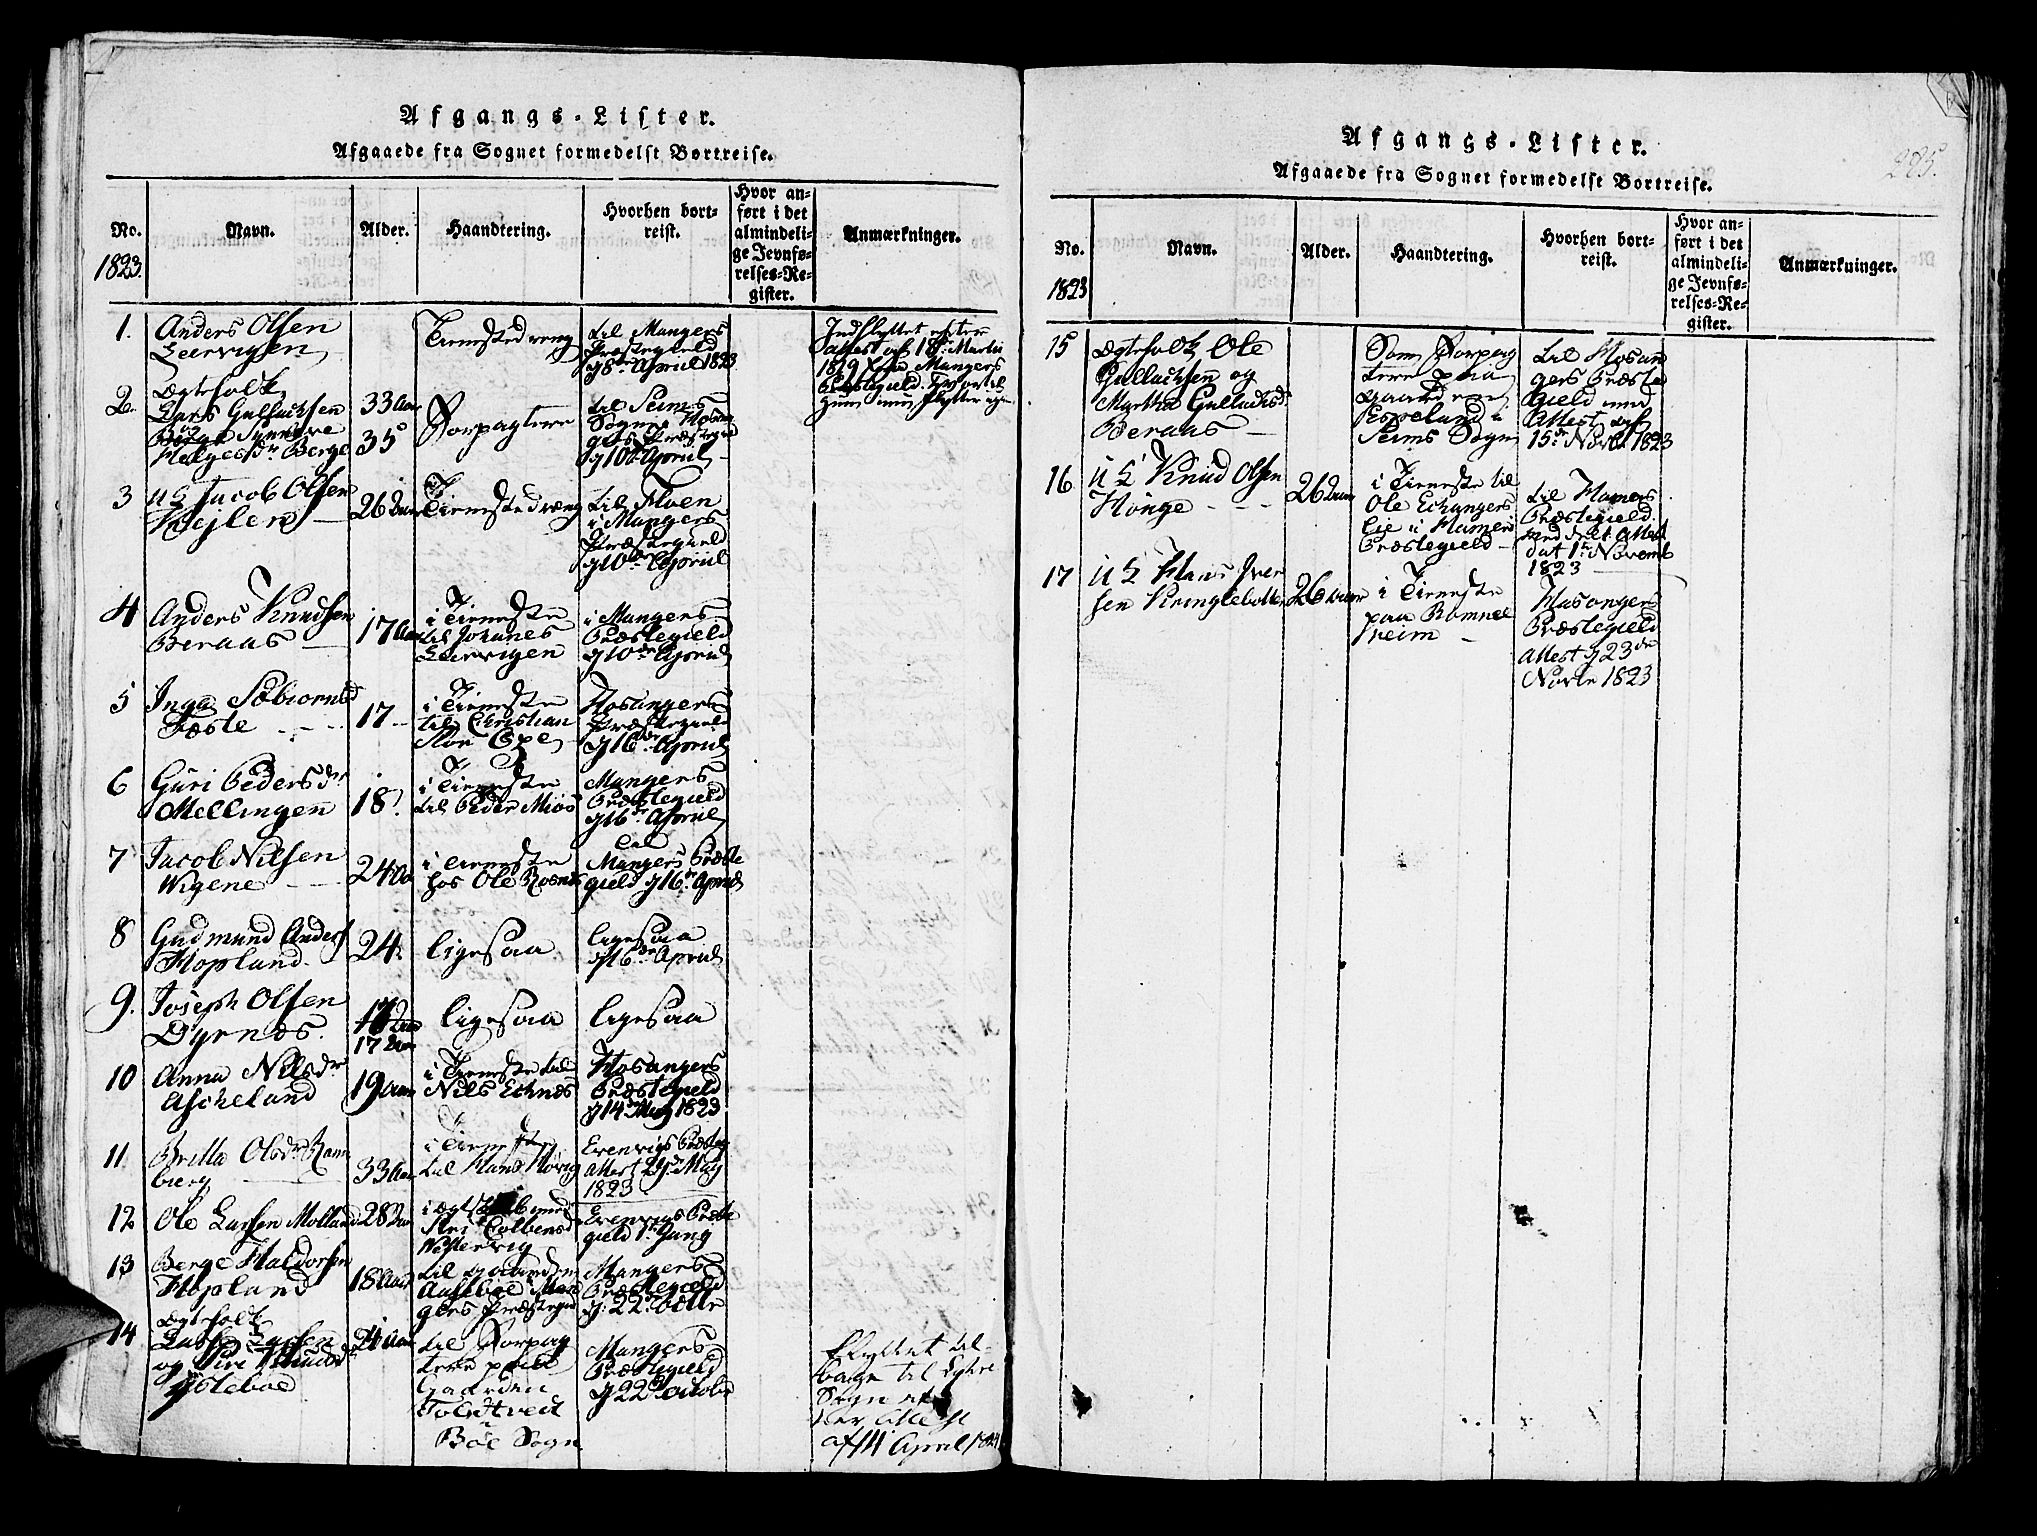 Afgangs-Lister.
Afgaaede fra Sognet formedelst Bortreise.
No.
1823.
Navn.
Alder.
Haandtering.
Hvorhen bort-
reist.
Hvor an-
ført i det
almindeli-
ge Jevnfø-
relses-Re-
gister.
Anmærkninger.
1.
Anders Olsen
Leervigen
Tienestedreng
til Mangers
Præstegield
18 April 1823
Indflyttet efter
Attest af 18de Martii
1819 fra Mangers
Præstegield
2.
Ægtefolk
Lars Gulfachsen
Synnive
Helgesdr Berge
33 Aar
35
Forpagtere
til Seims
Sogn Hosan
gers Præstegield
10de April
3
U: S Jacob Olsen
Kejlen
26 Aar
Tienestedreng
til Floen
i Mangers
Præstegield
10de April
4
Anders Knudsen
Beraas
17 Aar
i Tieneste
til Johanes
Leervigen
i Mangers
Præstegield
10de April
5
Inga Sæbiornsd
Fæste
17
i Tieneste
til Christian
Hosangers
Præstegield
16de April
6
Guri Pedersdr
Mellingen
18
i Tieneste
til Peder Mios
Mangers
Præstegield
16de April
7
Jacob Nilsen
Wigene
24 Aa
i Tieneste
hos Ole Rosnes
til
Mangers Præste
gield 16de April
8
Gudmund Anders
Hopland
24
ligesaa
ligesaa
16de April
9.
Joseph Olsen
Dyrnes.
17 Aar
ligesaa
ligesaa
10
Anna Nilsdr
Ascheland
19 Aar
i Tieneste til
Nils Echnes
Hosangers
Præstegield
14 May 1823
11
Britta Olsdr Ram
berg
33 Aar
i Tieneste
til Hans
Evenvigs Præsteg
Attest 29de May
1823
12
Ole Larsen Molland
28 Aar
i Ægteskab med
Colbens
Evenvigs Præste
gield 1
13
Berge Haldorsen
Hopland
18 Aar
til gaarden
i Man
gers Præstegield
Mangers
Præstegield
22
14
Ægtefolk
Lars Larsen
og
24 Aar
til Forpag
tere paa
Gaarden
Tolstveit
Bøe Sogn
Mangers
Præstegield
22 October
Flyttet til-
bage til Lygre
Sogn ef
ter Attest
af 11 April 1824
Afgangs-Lister.
Afgaaede fra Sognet formedelst Bortreise.
285.
No.
1823
Navn.
Alder.
Haandtering.
Hvorhen bort-
reist.
Hvor an-
ført i det
almindeli-
ge Jevnfø-
relses-Re-
gister.
Anmærkninger.
15
Ægtefolk Ole
Gullachsen og
Martha Gullachsd
Beraas
Som Forpag
tere paa
gaarden
Espeland i
Seims Sogn
til Hosan
gers Præste
gield med
Attest af
15de Novbr 1823
16
U: S Knud Olsen
Hõnge
26 Aar
i Tieneste til
Ole Echanger
Lie i Hamers
Præstegield
til Hamers
Præstegield
med Attest
dat 1te Novemb
1823
17
U S Hans Iver
sen Kringlebotten
26 Aar
i Tieneste
paa Romnel
heim
Hosangers
Præstegield
Attest 23de
Novbr 1823